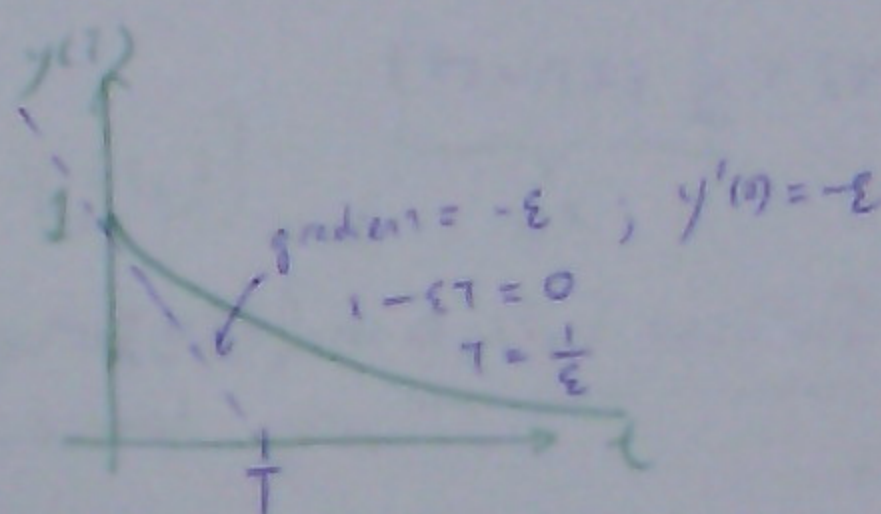 y(t)
1
gradient = -ε ; y'(0) = -ε
1 - ετ = 0
τ = 1/ε
t
T